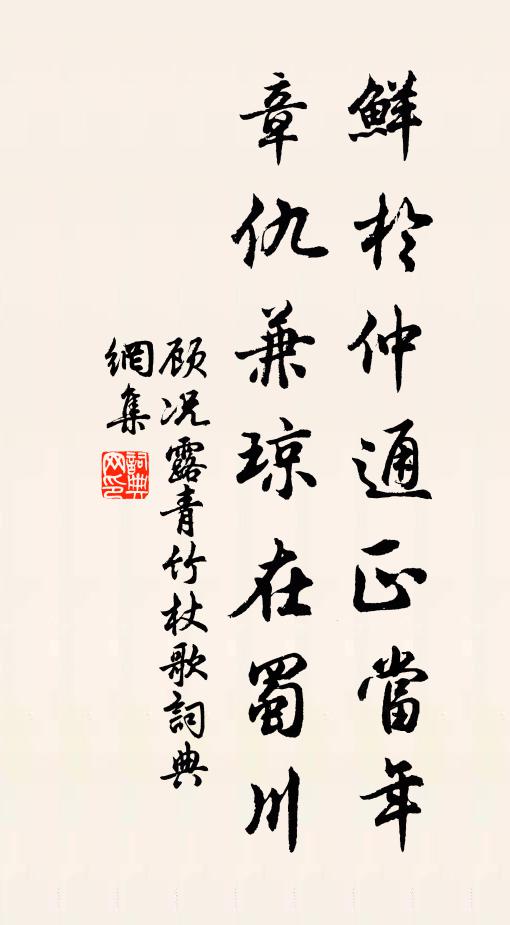 鮮於仲通正當年
章仇兼琼在蜀川
顾况露青竹杖歌詞典
網集
詞典網印